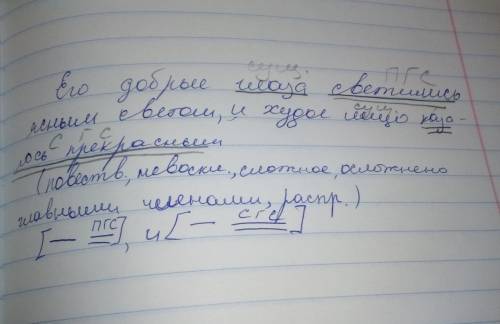 сущ. ПГС
Его добрые глаза светились
ясным светом, и худое лицо каза-
сущ.
С Г С
лось прекрасным
(повеств, невоскл., сложное, осложнено
главными членами, распр.)
[— ПГС], и [— СГС]